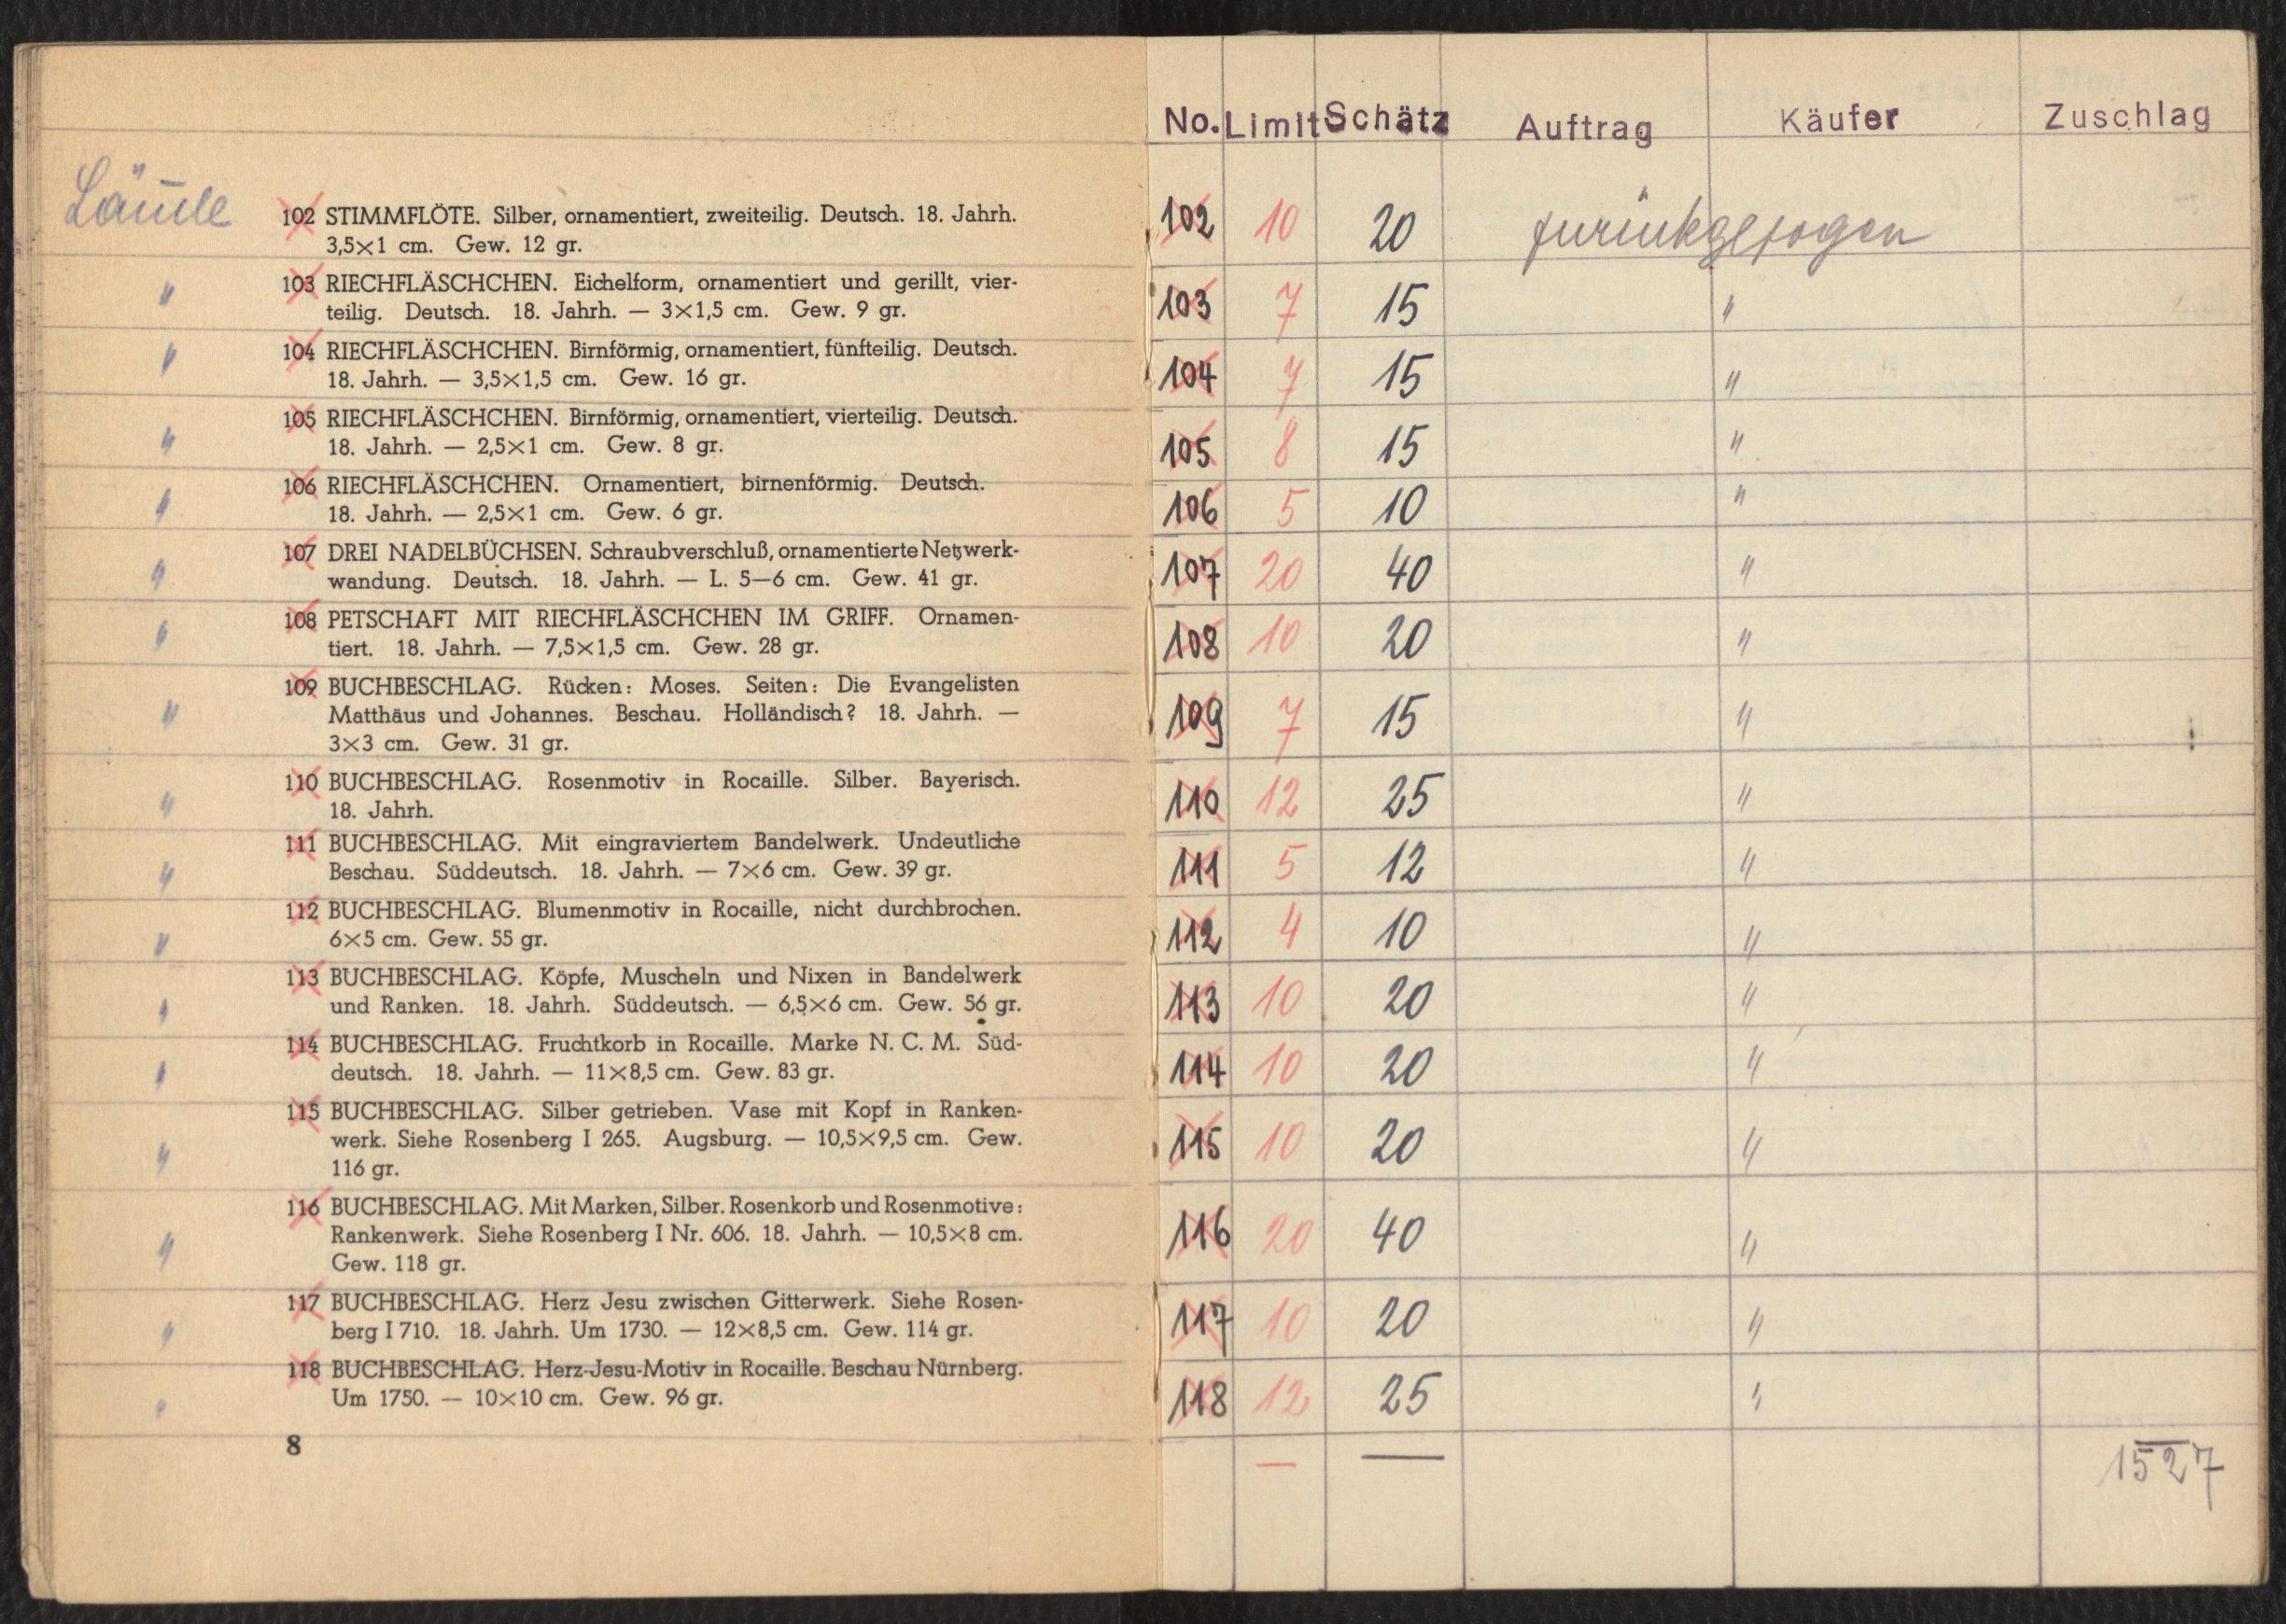 Lämle
102 STIMMFLÖTE. Silber, ornamentiert, zweiteilig. Deutsch. 18. Jahrh.
3,5×1 cm. Gew. 12 gr.
" 103 RIECHFLÄSCHCHEN. Eichelform, ornamentiert und gerillt, vier-
teilig. Deutsch. 18. Jahrh. — 3×1,5 cm. Gew. 9 gr.
" 104 RIECHFLÄSCHCHEN. Birnförmig, ornamentiert, fünfteilig. Deutsch.
18. Jahrh. — 3,5×1,5 cm. Gew. 16 gr.
" 105 RIECHFLÄSCHCHEN. Birnförmig, ornamentiert, vierteilig. Deutsch.
18. Jahrh. — 2,5×1 cm. Gew. 8 gr.
" 106 RIECHFLÄSCHCHEN. Ornamentiert, birnenförmig. Deutsch.
18. Jahrh. — 2,5×1 cm. Gew. 6 gr.
" 107 DREI NADELBÜCHSEN. Schraubverschluß, ornamentierte Netzwerk-
wandung. Deutsch. 18. Jahrh. — L. 5—6 cm. Gew. 41 gr.
" 108 PETSCHAFT MIT RIECHFLÄSCHCHEN IM GRIFF. Ornamen-
tiert. 18. Jahrh. — 7,5×1,5 cm. Gew. 28 gr.
" 109 BUCHBESCHLAG. Rücken: Moses. Seiten: Die Evangelisten
Matthäus und Johannes. Beschau. Holländisch? 18. Jahrh. —
3×3 cm. Gew. 31 gr.
" 110 BUCHBESCHLAG. Rosenmotiv in Rocaille. Silber. Bayerisch.
18. Jahrh.
" 111 BUCHBESCHLAG. Mit eingraviertem Bandelwerk. Undeutliche
Beschau. Süddeutsch. 18. Jahrh. — 7×6 cm. Gew. 39 gr.
" 112 BUCHBESCHLAG. Blumenmotiv in Rocaille, nicht durchbrochen.
6×5 cm. Gew. 55 gr.
" 113 BUCHBESCHLAG. Köpfe, Muscheln und Nixen in Bandelwerk
und Ranken. 18. Jahrh. Süddeutsch. — 6,5×6 cm. Gew. 56 gr.
" 114 BUCHBESCHLAG. Fruchtkorb in Rocaille. Marke N. C. M. Süd-
deutsch. 18. Jahrh. — 11×8,5 cm. Gew. 83 gr.
" 115 BUCHBESCHLAG. Silber getrieben. Vase mit Kopf in Ranken-
werk. Siehe Rosenberg I 265. Augsburg. — 10,5×9,5 cm. Gew.
116 gr.
" 116 BUCHBESCHLAG. Mit Marken, Silber. Rosenkorb und Rosenmotive:
Rankenwerk. Siehe Rosenberg I Nr. 606. 18. Jahrh. — 10,5×8 cm.
Gew. 118 gr.
" 117 BUCHBESCHLAG. Herz Jesu zwischen Gitterwerk. Siehe Rosen-
berg I 710. 18. Jahrh. Um 1730. — 12×8,5 cm. Gew. 114 gr.
" 118 BUCHBESCHLAG. Herz-Jesu-Motiv in Rocaille. Beschau Nürnberg.
Um 1750. — 10×10 cm. Gew. 96 gr.
8
No. Limit Schätz Auftrag Käufer Zuschlag
102 10 20 zurückgezogen
103 7 15 "
104 7 15 "
105 8 15 "
106 5 10 "
107 20 40 "
108 10 20 "
109 7 15 "
110 12 25 "
111 5 12 "
112 4 10 "
113 10 20 "
114 10 20 "
115 10 20 "
116 20 40 "
117 10 20 "
118 12 25 "
— — 1527